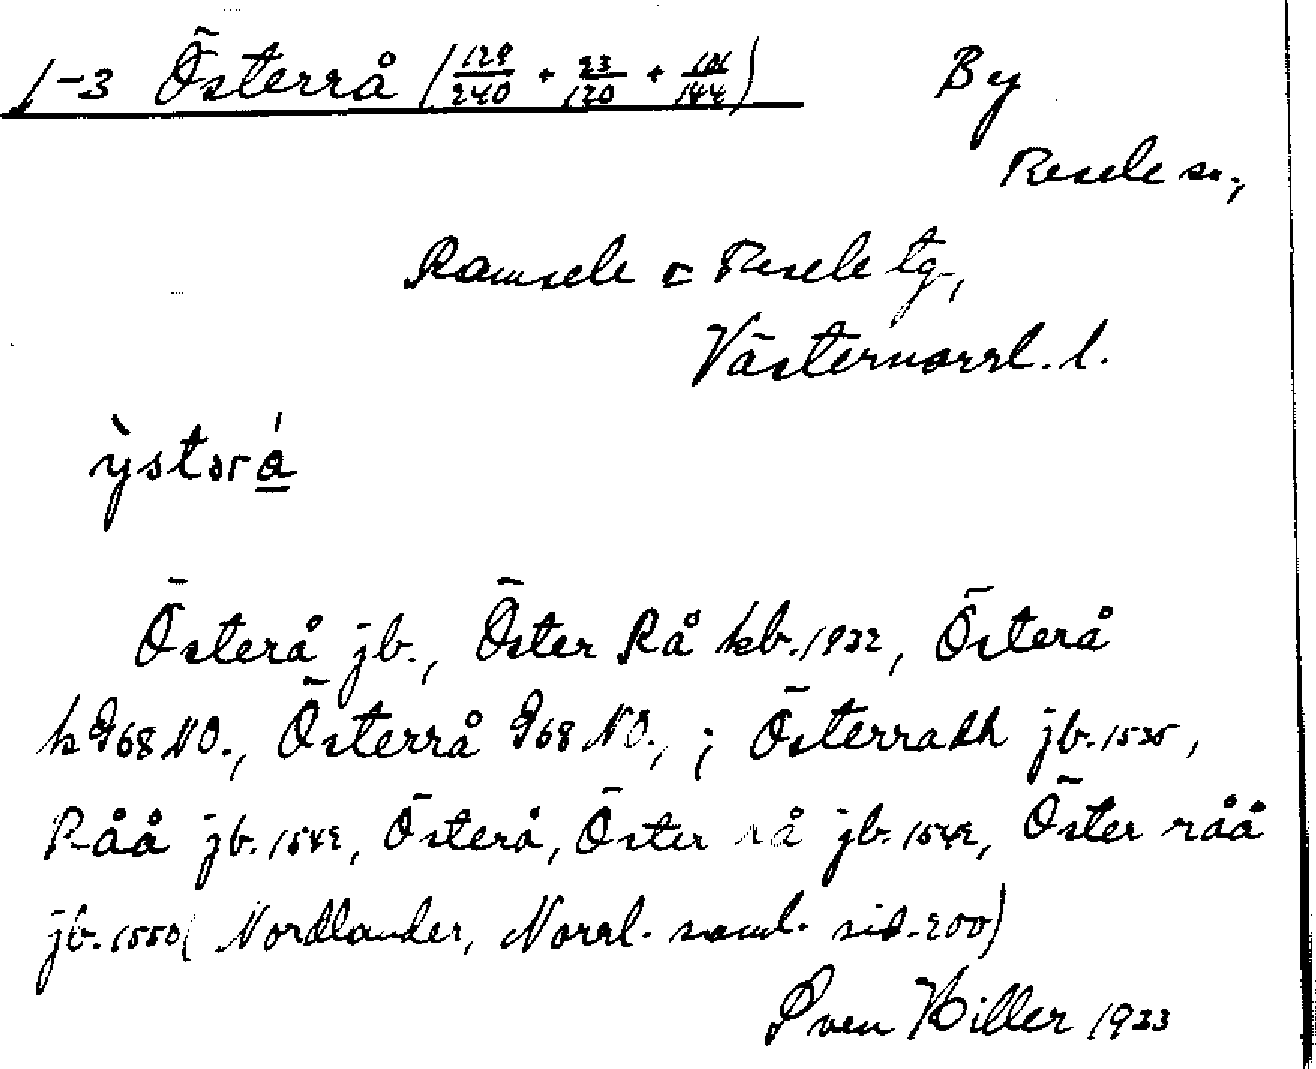 1-3 Österrå (129/240 + 23/120 + 101/144) By
Resele sn.,
Ramsele o Resele tg.,
Västernorrl. l.
ỳstərá
Österå jb., Öster Rå kb. 1932, Österå
k G68 NO., Österrå G68 NO., ; Österradh jb. 1535,
Råå jb. 1542, Österå, Öster rå jb. 1542, Öster råå
jb. 1550 (Nordlander, Norrl. saml. sid. 200)
Sven Hiller 1933